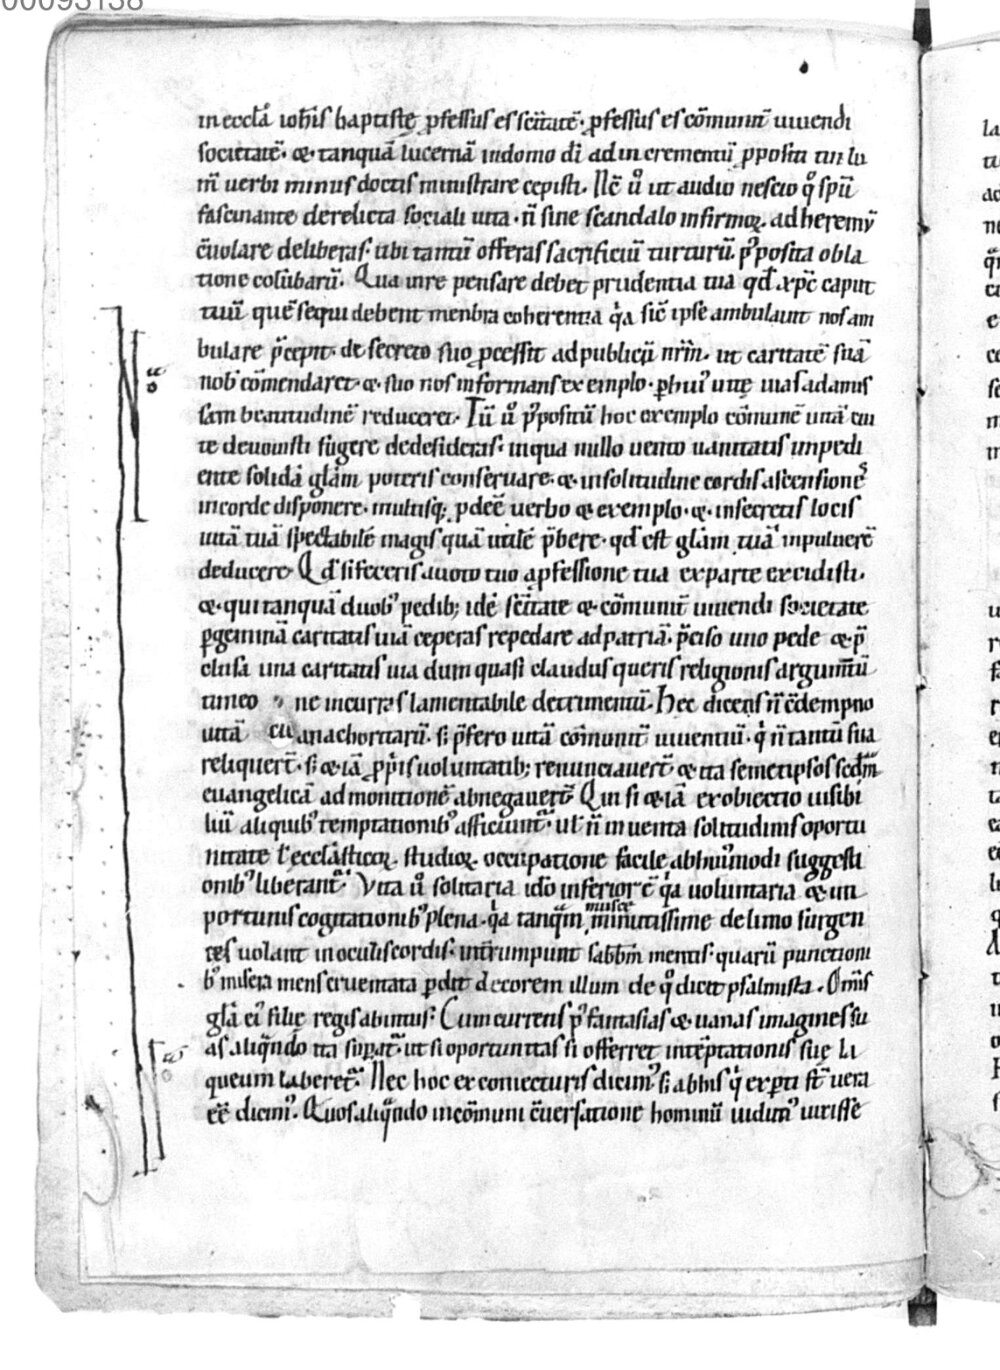 00093138
in eccłā ioħis baptistę ꝓfessus es sc̄itatē· ꝓfessus es cōmunit̄ uiuendi
societatē· & tanquā lucernā in domo dī ad incrementū ꝓpositi tui lu
m̄ uerbi minus doctis ministrare cepisti. Nc̄ ū ut audio nescio q̊ spū
fascinante derelicta sociali uita· n̄ sine scandalo infirmoꝝ· ad heremū
c̄uolare deliberas· ubi tantū offeras sacrificiū turturū· p̄posita obla
tione colūbarū. Qua in re pensare debet prudentia tua qđ xp̄c caput
tuū quē sequi debent menbra coherentia q̓a sic̄ ipse ambulauit nos am
bulare p̄cepit· de secreto suo ꝓcessit ad publicū nr̄m· ut caritatē suā
nob̓ cōmendaret· & suo nos informans exemplo· ꝑ hui᾿ uitę uias ad amis
sam beatitudinē reduceret. Tū ū p̄positū hoc exemplo cōmunē uitā cui
te deuouisti fugere de desideras· in qua nullo uento uanitatis impedi
ente solidā głam poteris conseruare· & in solitudine cordis ascensionēs
in corde disponere· multisq; ꝓdeē uerbo & exemplo· & in secretis locis
uitā tuā spectabilē magis quā utilē p̄bere· qđ est głam tuā in puluerē
deducere. Qđ si feceris a uoto tuo a ꝓfessione tua ex parte excidisti.
& qui tanquā duob᾿ pedib; idē sc̄itate & cōmunit̄ uiuendi societate
ꝑ geminā caritatis uiā ceperas repedare ad patriā· p̄ciso uno pede & p̄
clusa una caritatis uia dum quasi claudus queris religionis argumtū
timeo ne incurras lamentabile detrimentū. Hec dicens n̄ c̄dempno
uitā anachoritarū· s; p̄fero uitā cōmunit̄ uiuentiū· q̓ n̄ tantū sua
reliquer̄t· s; & iā ꝓp̓is uoluntatib; renunciauer̄t & ita semetipsos scdm̄
euangelicā admonitionē abnegauer̄t. Qui si & iā ex obiectio uisibi
liū aliquib᾿ temptationib᾿ afficiunt᾿· uł n̄ inuenta solitudinis oportu
nitate ł ecclāsticoꝝ· studioꝝ· occupatione facile ab hui᾿modi suggesti
onib᾿ liberant᾿. Vita ū solitaria ido inferior ē q̓a uoluntaria & in
portunis cogitationib᾿ plena· q̓a tanqm̄ muscę minutissime de limo surgen
tes uolant in oculis cordis· int̄rumpunt sabbm̄ mentis· quarū punctioni
b᾿ misera mens cruentata ꝑdit decorem illum de q̊ dicit psalmista. Omīs
głā ei᾿ filię regis ab intus. Cum currens p᾿ fantasias & uanas imagines su
as aliqn̄do ita supat᾿ ut si oportunitas si offerret intēptationis suę la
queum laberet᾿. Nec hoc ex coniecturis dicim᾿ s; ab his q̓ exꝑti st̄ uera
eē dicim᾿. Quos aliqn̄do in cōmuni c̄uersatione hominū uidim᾿ uixisse